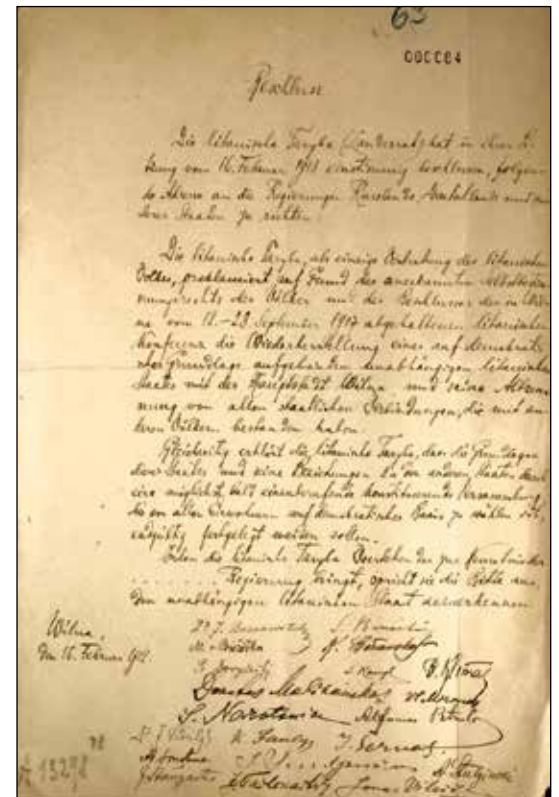 63
000084
Beschluss
Die litauische Taryba (Landesrat) hat in ihrer Sit-
zung vom 16. Februar 1918 einstimmig beschlossen, folgen-
de an die Regierungen Russlands, Deutschlands und an-
derer Staaten zu richten:
Die litauische Taryba, als einzige Vertretung des litauischen
Volkes, proklamiert auf Grund des anerkannten Selbstbestim-
mungsrechts der Völker und des Beschlusses der in Wil-
na vom 18.–23. September 1917 abgehaltenen litauischen
Konferenz die Wiederherstellung eines auf demokrati-
scher Grundlage aufgebauten unabhängigen litauischen
Staates mit der Hauptstadt Wilna und seine Abtren-
nung von allen staatlichen Verbindungen, die mit an-
deren Völkern bestanden haben.
Gleichzeitig erklärt die litauische Taryba, dass die Grundlagen
dieses Staates und seine Beziehungen zu den anderen Staaten durch
eine möglichst bald einzuberufende konstituierende Versammlung,
die von allen Einwohnern auf demokratischer Basis zu wählen ist,
endgültig festgelegt werden sollen.
Indem die litauische Taryba zur Kenntnis der
. . . . . . . . Regierung bringt, spricht sie die Bitte aus,
den unabhängigen litauischen Staat anzuerkennen.
Wilna,
den 16. Februar 1918.
Dr J. Basanavičius S. Banaitis
M. Biržiška
Donatas Malinauskas
S. Narutavičius Alfonsas Petrulis
J. Šernas
Jonas Vileišis